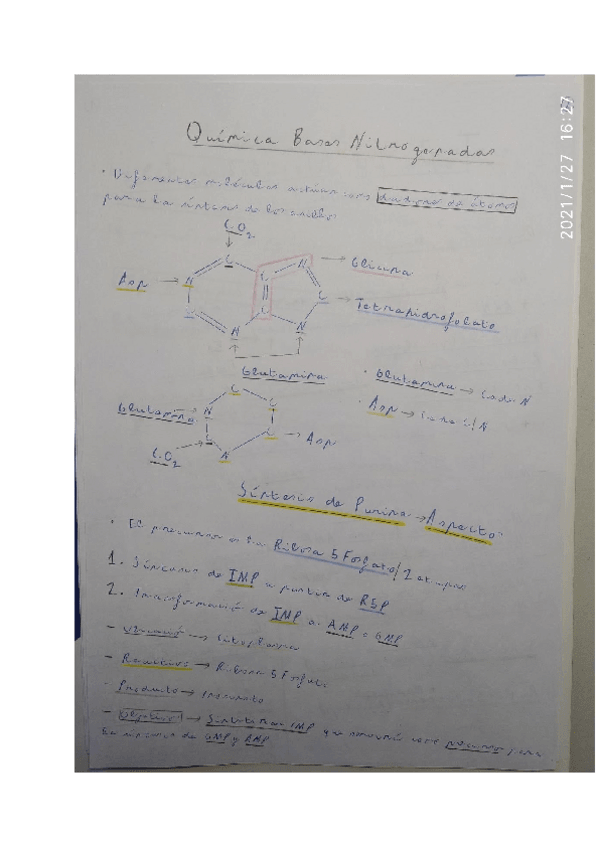 2021/1/27 16:27
Química Bases Nitrogenadas
· Diferentes moléculas actúan como de átomos
para la síntesis de los anillos
CO2
C
N
Glicina
Asp
N
C
C
C
C
Tetrahidrofolato
N
N
Glutamina
· Glutamina → Cede N
C
Glutamina
N
C
· Asp → Cede C/N
C
C
Asp
CO2
N
Síntesis de Purina → Aspectos
· El precursor es la Ribosa 5 Fosfato / 2 etapas
1. Síntesis de IMP a partir de R5P
2. Transformación de IMP a AMP o GMP
- Ubicación → Citoplasma
- Reactivos → Ribosa 5 Fosfato
- Producto → Inosinato
- Objetivo → Sintetizar IMP que servirá como precursor para
la síntesis de GMP y AMP